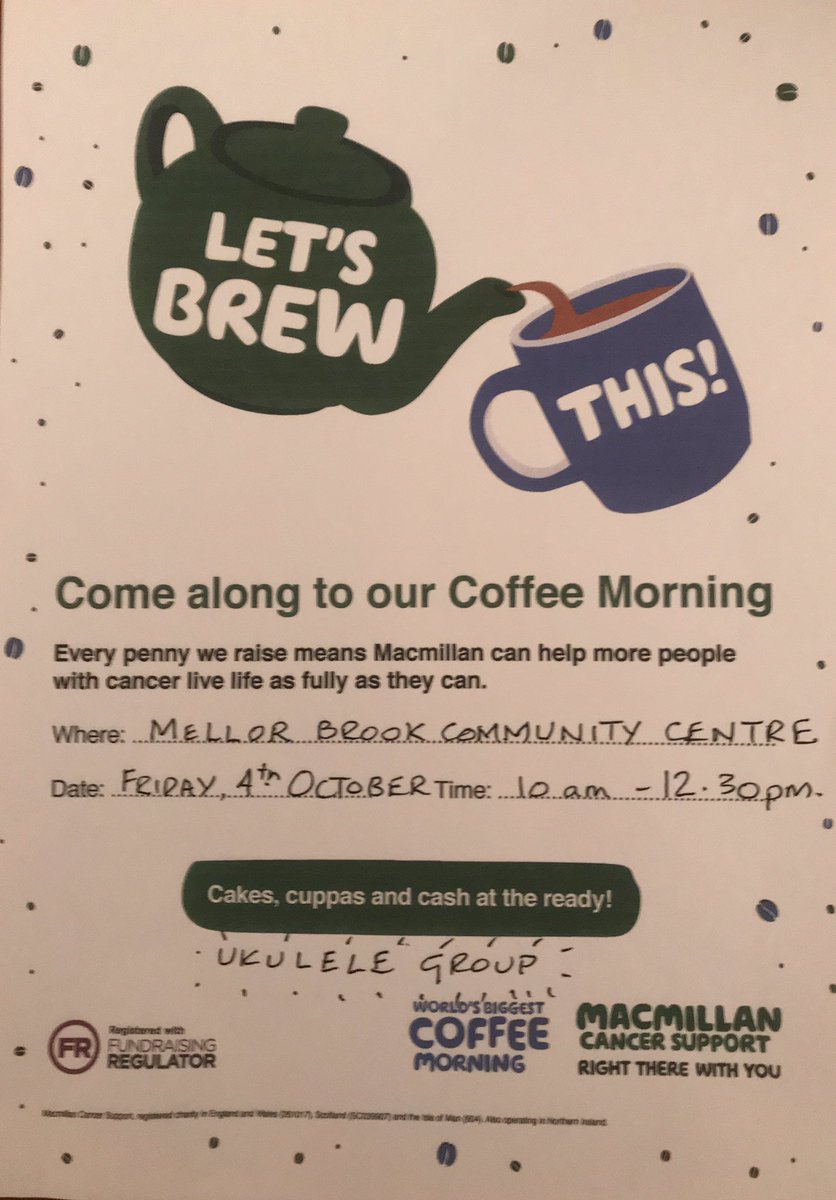 LET'S
BREW
THIS!
Come along to our Coffee Morning
Every penny we raise means Macmillan can help more people
with cancer live life as fully as they can.
Where: MELLOR BROOK COMMUNITY CENTRE
Date: FRIDAY, 4th OCTOBER Time: 10 am - 12.30pm.
Cakes, cuppas and cash at the ready!
UKULELE GROUP
FR
Registered with
FUNDRAISING
REGULATOR
WORLD'S BIGGEST
COFFEE
MORNING
MACMILLAN
CANCER SUPPORT
RIGHT THERE WITH YOU
Macmillan Cancer Support, registered charity in England and Wales (261017), Scotland (SC039907) and the Isle of Man (604). Also operating in Northern Ireland.